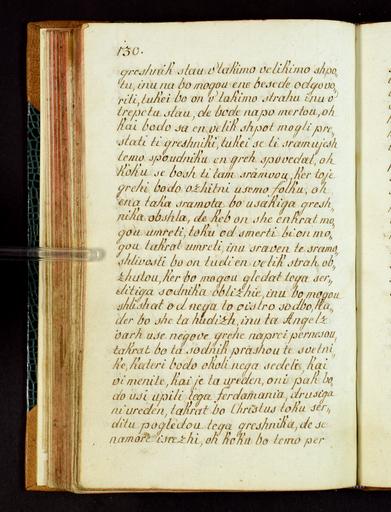 130.
greshnik stau v'takimo velikimo shpo,
tu, inu na bo mogou ene besede odgovo,
riti, tukei bo on v'takimo strahu inu v'
trepetu stau, de bode napo mertou, oh
kai bodo sa en velik shpot mogli pre,
stati ti greshniki, tukei se ti sramujesh
temo spoudniku en greh spovedat, oh
koku se bosh ti tam sramvou, ker toje
grehi bodo ozhitni usemo folku, oh
ena taka sramota bo usakiga gresh,
nika obshla, de keb on she enkrat mo,
gou umreti, toku od smerti bi on mo,
gou takrat umreti, inu sraven te sramo,
shlivosti bo on tudi en velik strah ob,
zhutou, ker bo mogou gledat tega ser,
ditiga sodnika oblizhie, inu bo mogou
shlishat od nega to oistro sodbo, ka,
der bo she ta hudizh, inu ta Angelz
varh use negove grehe naprei pernesou,
takrat bo ta sodnik prashou te svetni,
ke, kateri bodo okoli nega sedeli, kai
vi menite, kai je ta ureden, oni pak bo,
do usi upili tega ferdamania, drusiga
ni ureden, takrat bo Christus toku ser,
ditu pogledou tega greshnika, de se
namore isrezhi, oh koka bo temo per